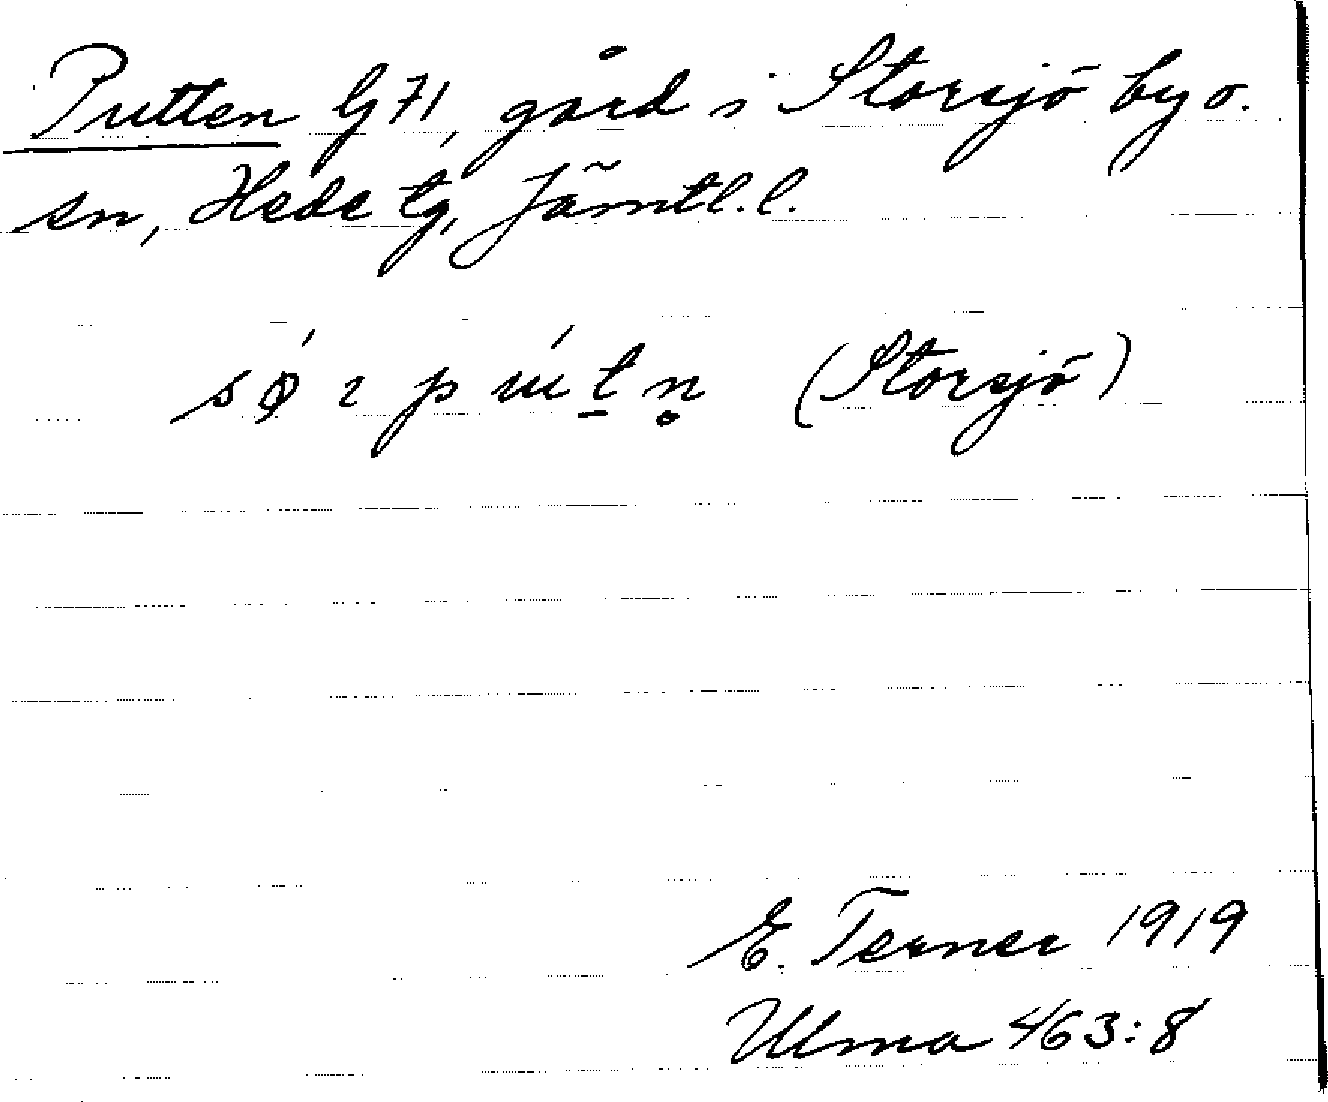 Putten G 71, gård i Storsjö by o.
sn, Hede tg, Jämtl. l.
sǿ ɩ p úu t̲ n̥ (Storsjö)
E. Terner 1919
Ulma 463:8